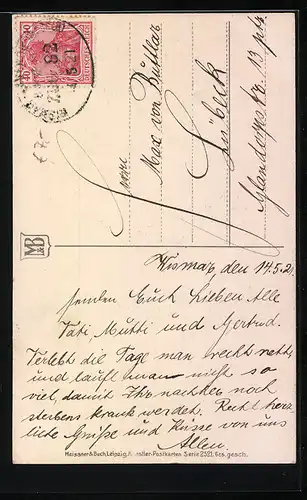 DEUTSCHES REICH
40
WISMAR
5.21
€ 8,-
MB
Max von Buttlar
Lübeck
13 ptr.
Wismar, den 14.5.21
senden Euch Lieben Alle
Vati, Mutti und Gertrud.
Verlebt die Tage man recht nett,
und lauft man nich so
viel, damit Ihr nachher noch
sterbens krank werdet. Recht herz
liche Grüße und Küsse von uns
Allen.
Meissner & Buch, Leipzig, Künstler-Postkarten Serie 2521. Ges. gesch.